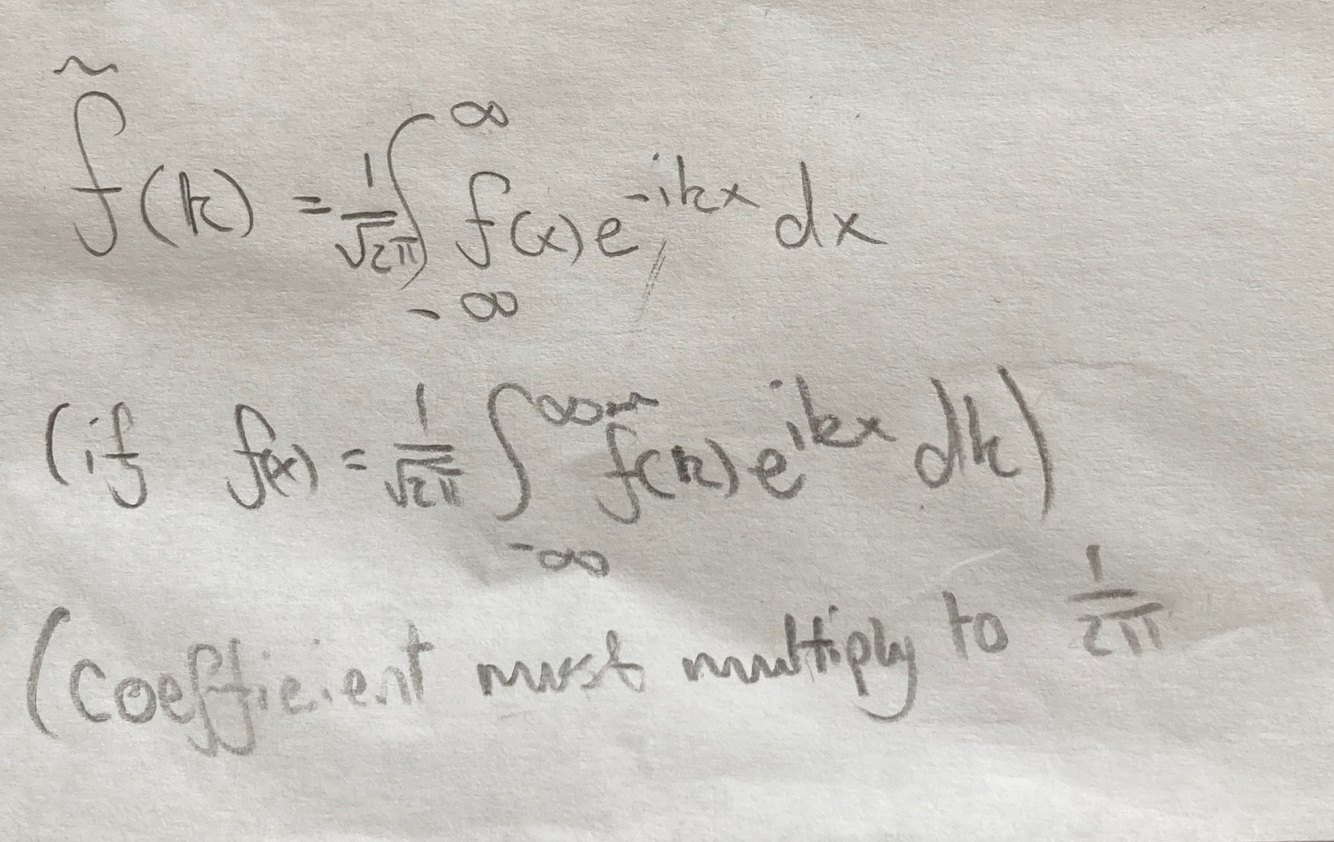 f̃(k) = 1/√2π ∫_{-∞}^{∞} f(x) e^{-ikx} dx
(if f(x) = 1/√2π ∫_{-∞}^{∞} f̃(k) e^{ikx} dk)
(Coefficient must multiply to 1/2π